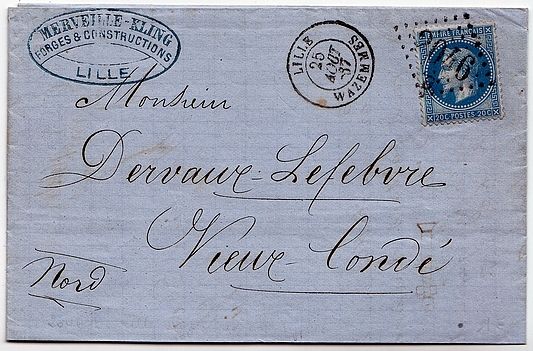 MERVEILLE-KLING
FORGES & CONSTRUCTIONS
LILLE
LILLE
25
AOUT
67
WAZEMMES
EMPIRE FRANÇAIS
20C POSTES 20C
Monsieur
Dervaux-Lefebvre
Vieux Condé
Nord